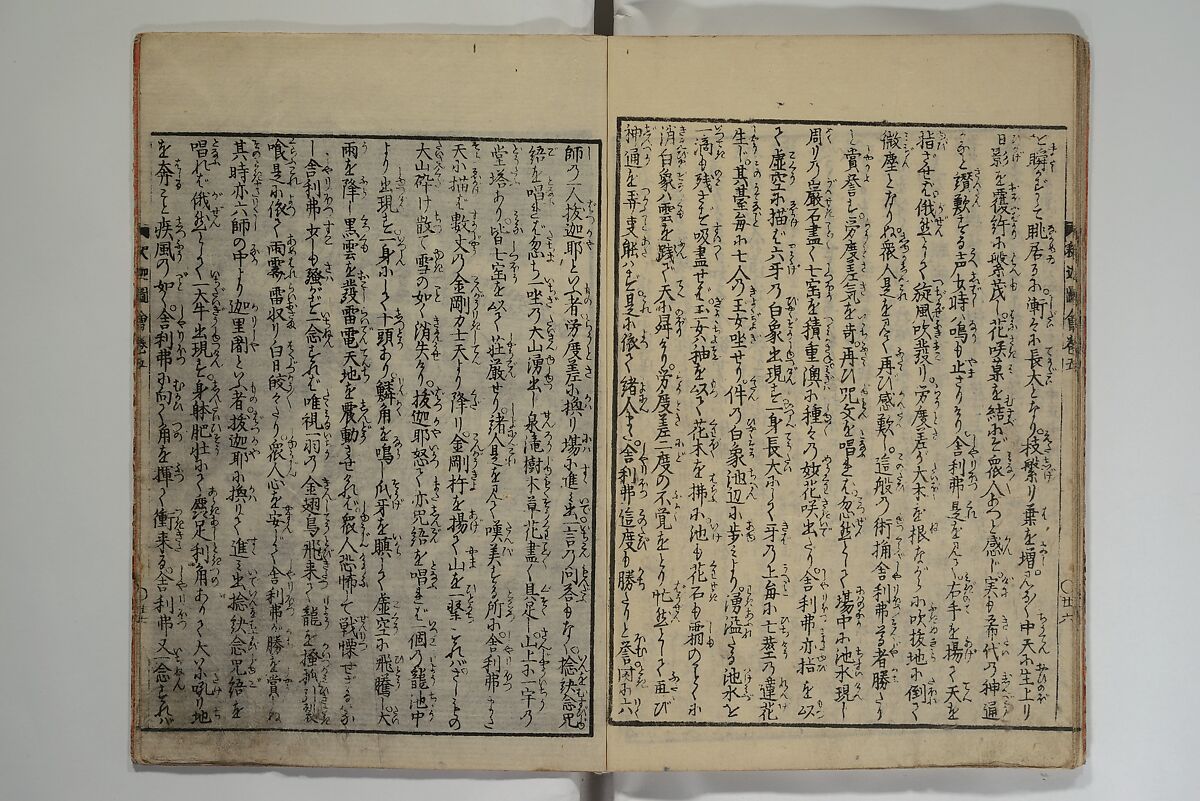 と瞬がずして眺居るに漸々に長大となり。枝繁り葉を増さんなく中天に生上り
日影を覆許に繁茂し。花咲菓を結れど衆人あつと感じ実も希代の神通
かなと讃歎する声々時鳴も止ざりけり舎利弗是を見て。右手を揚て天を
指させば。俄然として旋風吹発り。労度差が大木を根ながらに吹抜地に倒て
微塵となりぬ衆人是を見て再び感歎し。這般の術捔舎利弗尊者勝たり
と賞誉を労度差気を苛。再び呪文を唱れば忽然として場中に池水現し
周りの巌石盡く七宝を積重澳に種々の妙花咲出たり。舎利弗亦指を以
て虚空に描ば六牙の白象出現を一身長大にして牙の上毎に七茎の蓮花
生じ。其茎毎に七人の玉女坐せり件の白象池辺に歩より湧溢たる池水を
一滴も残さを吸盡せば。玉女袖を以て花木を拂に池も花石も両ながらに
消白象ハ雲を踐で天に昇りぬ労度差二度の不覚をとり忙然として再び
神通を弄支能ハざれば是に依て緒人また。舎利弗這度も勝たりと誉。因に六
師の一人抜迦耶といふ者労度差に換り場に進み出一言の問答もなく捻鈌念呪
語を唱れば忽ち一坐の大山湧出し泉滝樹木草花盡く具足し山上に一宇の
堂塔あり皆七宝を以て荘厳せり緒人是を見て嘆美する所に舎利弗またも
天に描ば数丈の金剛力士天より降り。金剛杵を揚て山を一撃すればさしもの
大山砕け散て雪の如く消失たり。抜迦耶怒て亦咒語を唱れば一個の龍池中
より出現を一身にして十頭あり鱗角を鳴し爪牙を瞋して虚空に飛騰し大
雨を降し黒雲を發雷電天地を震動させければ衆人恐怖て戦慄せざるハなか
し舎利弗少しも騒がで一念すれば唯視一羽の金翅鳥飛来て龍を掻抓み裂
喰是に依て雨霽雷収り白日皎々たり衆人心を安じて舎利弗が勝を賞しぬ
其時亦六師の中より迦里闇といふ者抜迦耶に換りて進み出捻鈌念呪語を
唱れば俄然として一大牛出現を身躰肥壮にして麁足利角ありて大いに吼り地
を奔こと疾風の如く舎利弗に向て角を揮て衝来る。舎利弗又一念すれば